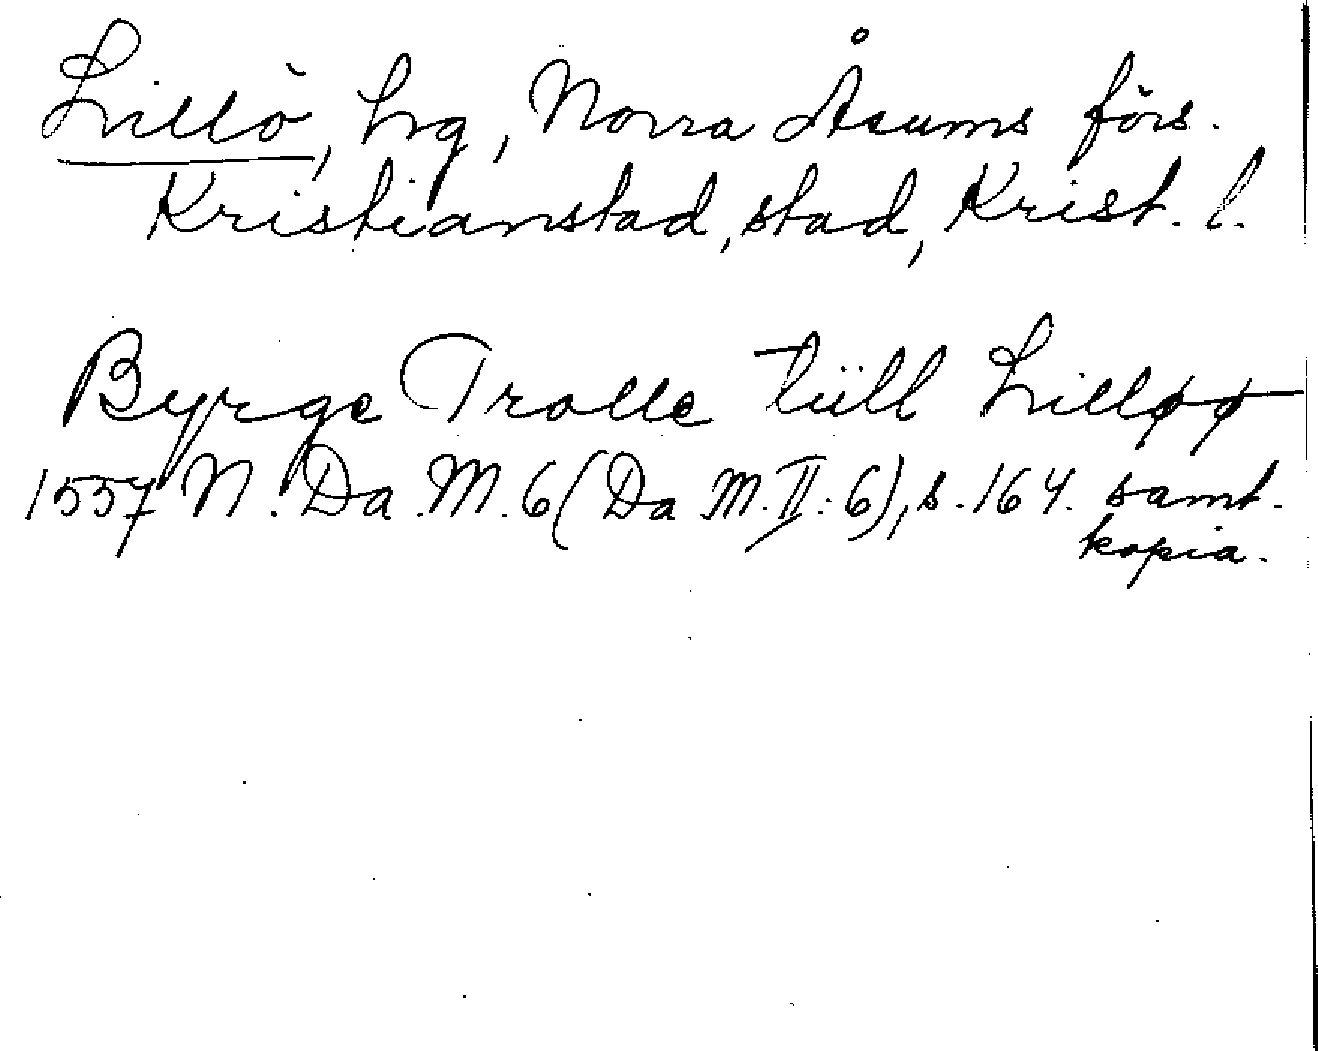 Lillö, hg, Norra Åsums förs.
Kristianstad, stad, Krist. l.
Byrge Trolle tüll Lilløø
1557 N. Da. M. 6 (Da M. II: 6), s. 164. samt.
kopia.